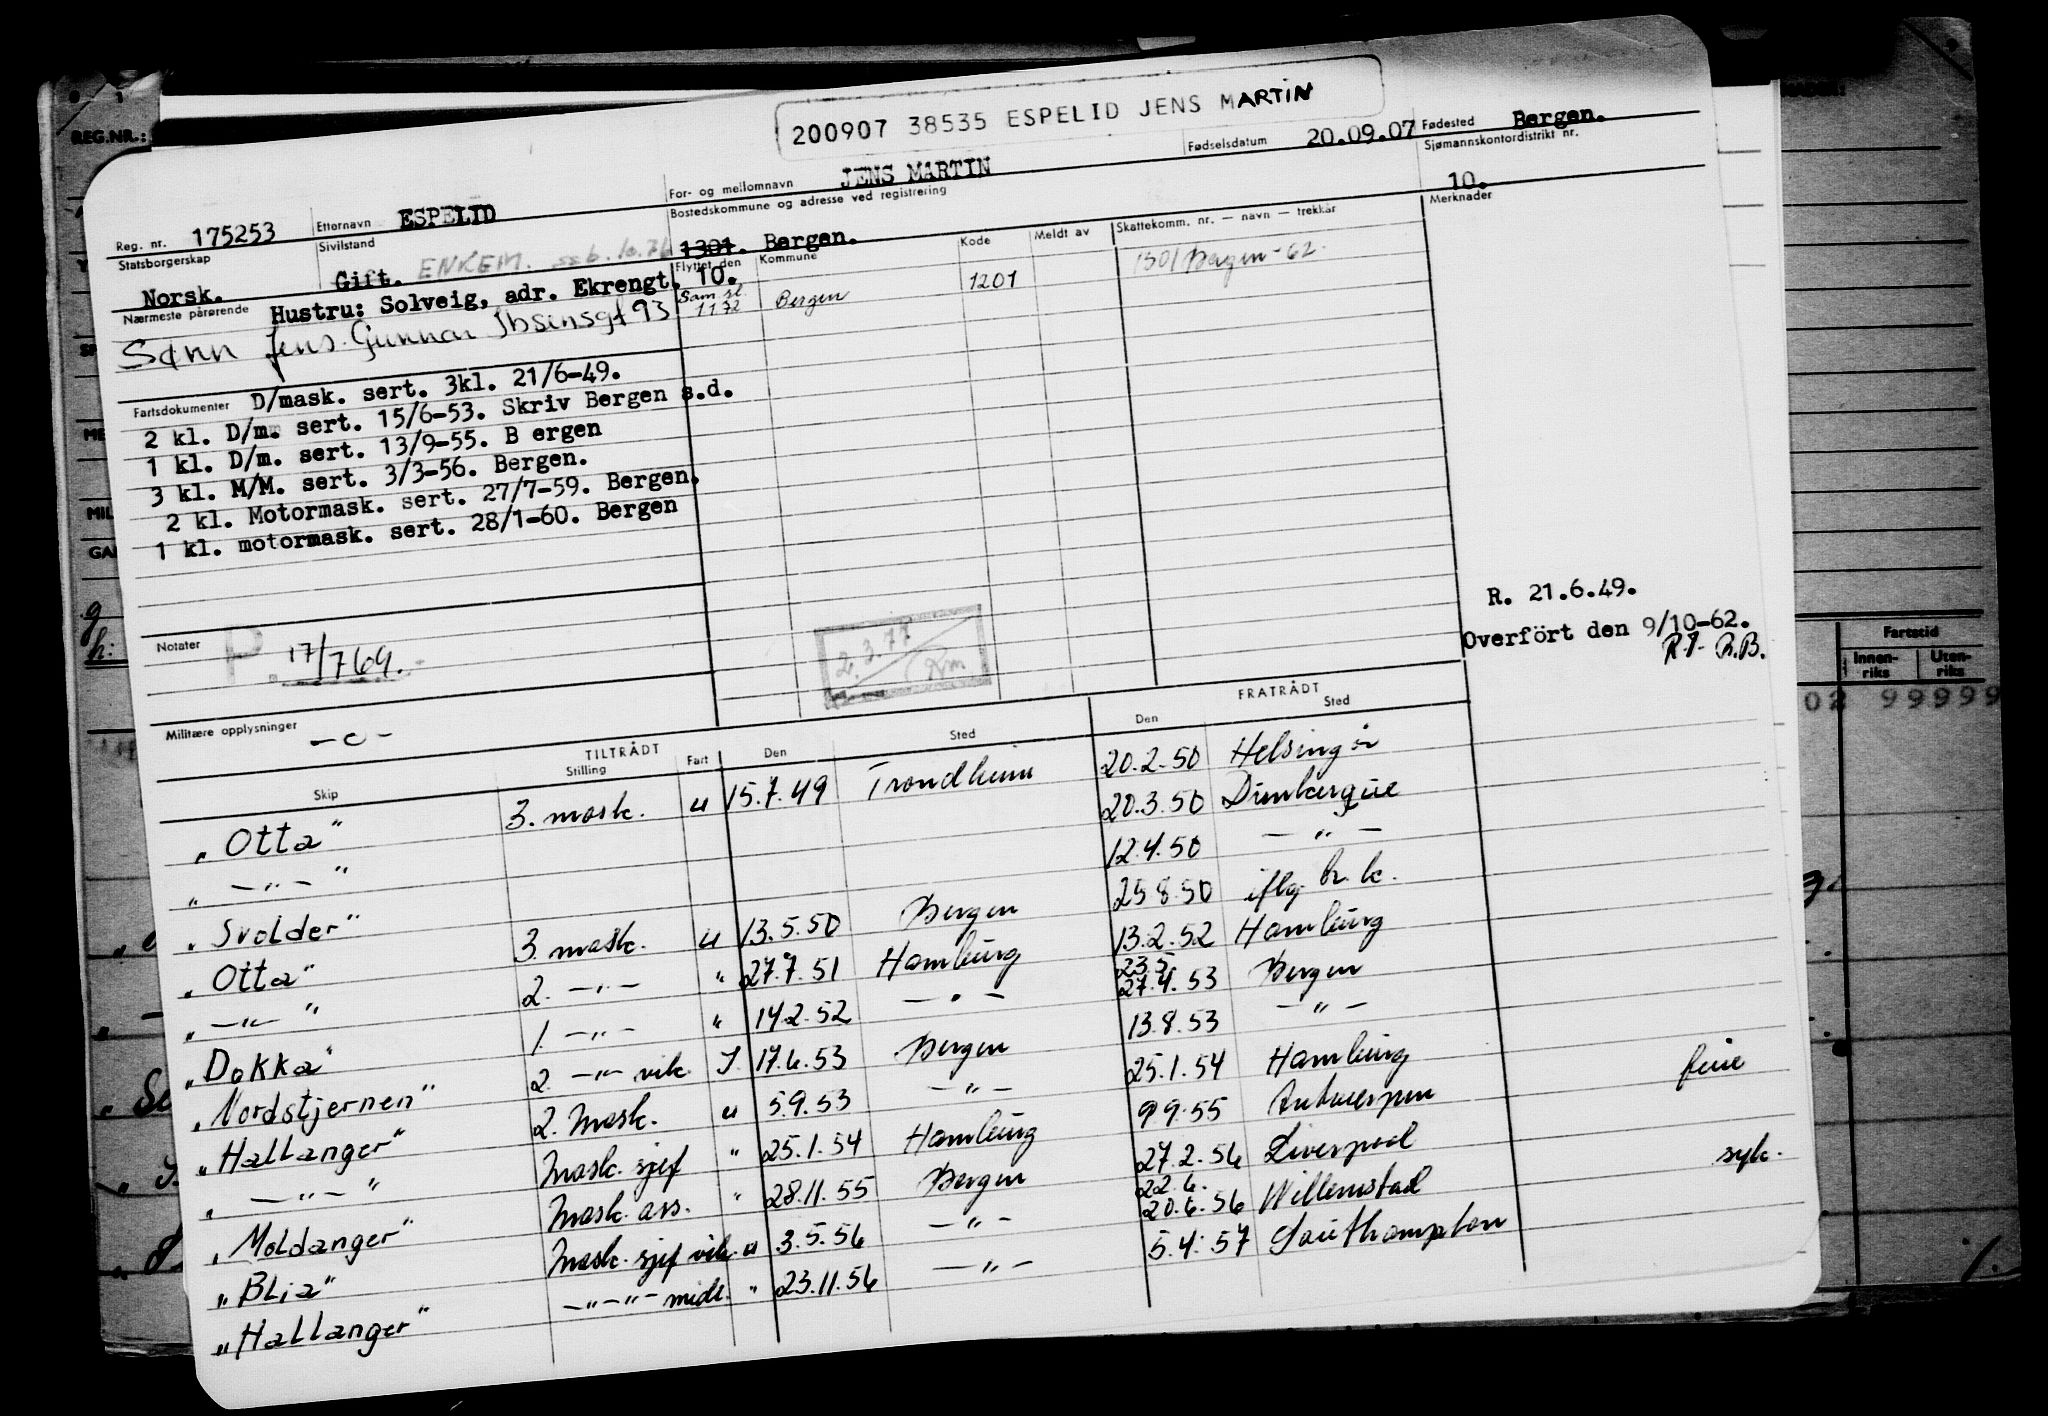 200907 38535 ESPELID JENS MARTIN
REG.NR.:
Reg. nr. 175253
Etternavn ESPELID
For- og mellomnavn JENS MARTIN
Fødselsdatum 20.09.07
Fødested Bergen.
Statsborgerskap Norsk.
Sivilstand Gift. ENKEM.
Bostedskommune og adresse ved registrering
1301. Bergen.
Sjømannskontordistrikt nr. 10.
Nærmeste pårørende Hustru: Solveig, adr. Ekrengt. 10.
Sønn Jens Gunnar Ibsensgt 93
Flyttet den Kommune Kode Meldt av Skattekomm. nr. — navn — trekkår Merknader
Sam sl. 1172 Bergen 1201 1301 Bergen - 62.
Fartsdokumenter D/mask. sert. 3kl. 21/6-49.
2 kl. D/m. sert. 15/6-53. Skriv Bergen s.d.
1 kl. D/m. sert. 13/9-55. B ergen
3 kl. M/M. sert. 3/3-56. Bergen.
2 kl. Motormask. sert. 27/7-59. Bergen.
1 kl. motormask. sert. 28/1-60. Bergen
R. 21.6.49.
Overfört den 9/10-62.
R.B.
Notater P. 17/769.
2.3.77
Km
Militære opplysninger -o-
TILTRÅDT FRATRÅDT
Skip Stilling Fart Den Sted Den Sted
Fartstid
Innen-riks Uten-riks
02 99999
„Otta" 3. mask. u 15.7.49 Trondheim 20.2.50 Helsingør
„ -"- " 20.3.50 Dunkerque
„Svolder" 12.4.50 -"-
„Otta" 3. mask. u 13.5.50 Bergen 25.8.50 iflg. br. k.
„ -"- " 2. -"- " 27.7.51 Hamburg 13.2.52 Hamburg
„Dokka" 1 -"- " 14.2.52 -"- 23.5. 27.4.53 Bergen
„Nordstjernen" 2. -"- vik. I. 17.6.53 Bergen 13.8.53 -"-
„Hallanger" 2. Mask. u 5.9.53 -"- 25.1.54 Hamburg
„ -"- " Mask. sjef " 25.1.54 Hamburg 9.9.55 Antwerpen ferie
„Moldanger" Mask. ass. " 28.11.55 Bergen 27.2.56 Liverpool
„Blia" Mask. sjef vik. u 3.5.56 -"- 22.6. 20.6.56 Willemstad syk.
„Hallanger" -"-"- midl. " 23.11.56 -"- 5.4.57 Southampton